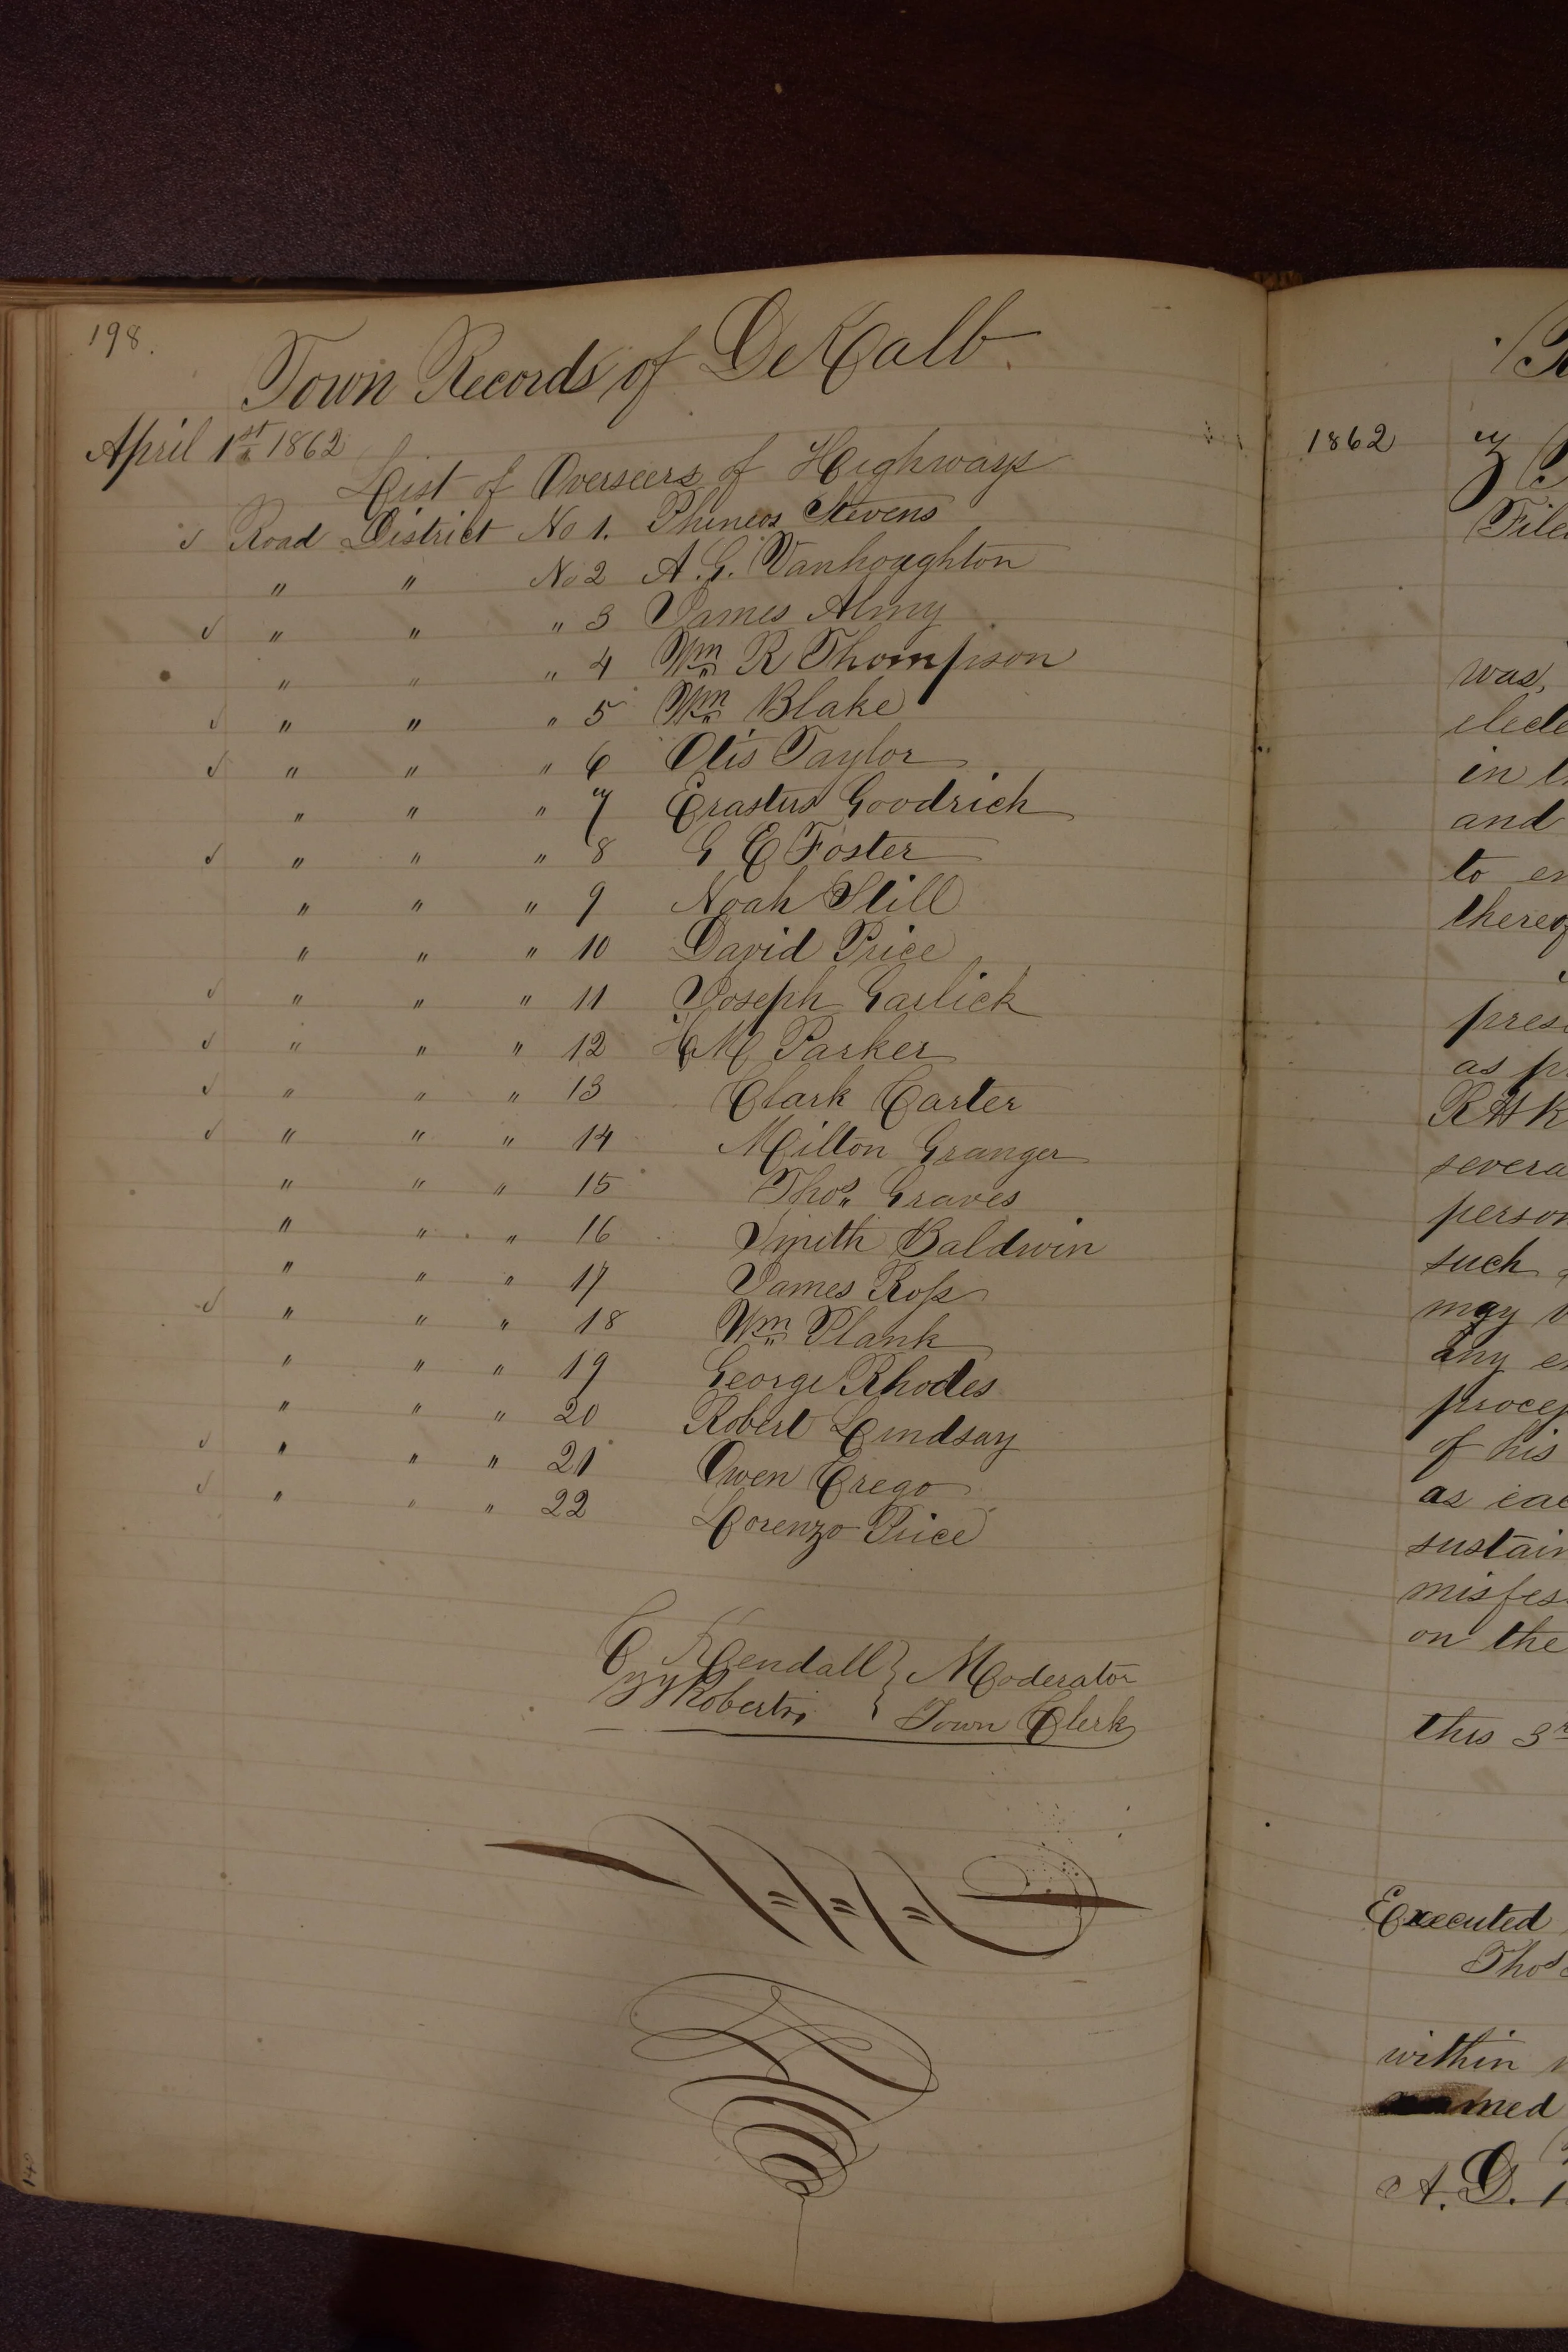 198.
Town Records of DeKalb.
April 1st 1862
List of Overseers of Highways
✓ Road District No 1. Phineas Stevens
" " No 2 A. G. Vanhoughton
✓ " " " 3 James Almy
" " " 4 Wm R Thompson
✓ " " " 5 Wm Blake
✓ " " " 6 Otis Taylor
" " " 7 Erastus Goodrich
✓ " " " 8 G E Foster
" " " 9 Noah Still
" " " 10 David Price
✓ " " " 11 Joseph Garlick
✓ " " " 12 M Parker
✓ " " " 13 Clark Carter
✓ " " " 14 Milton Granger
" " " 15 Thos. Graves
" " " 16 Smith Baldwin
" " " 17 James Ross
✓ " " " 18 Wm Plank
" " " 19 George Rhodes
" " " 20 Robert Lindsay
✓ " " " 21 Owen Crego
✓ " " " 22 Lorenzo Price
C Kendall } Moderator
Roberts, } Town Clerk
1862
File
was,
electe
in th
and
to en
thereof
pres
as p
R H K
severa
person
such
may
any e
of his
as eac
sustain
misfes
on the
this 3r
Executed
Thos
within
med
A. D. 1